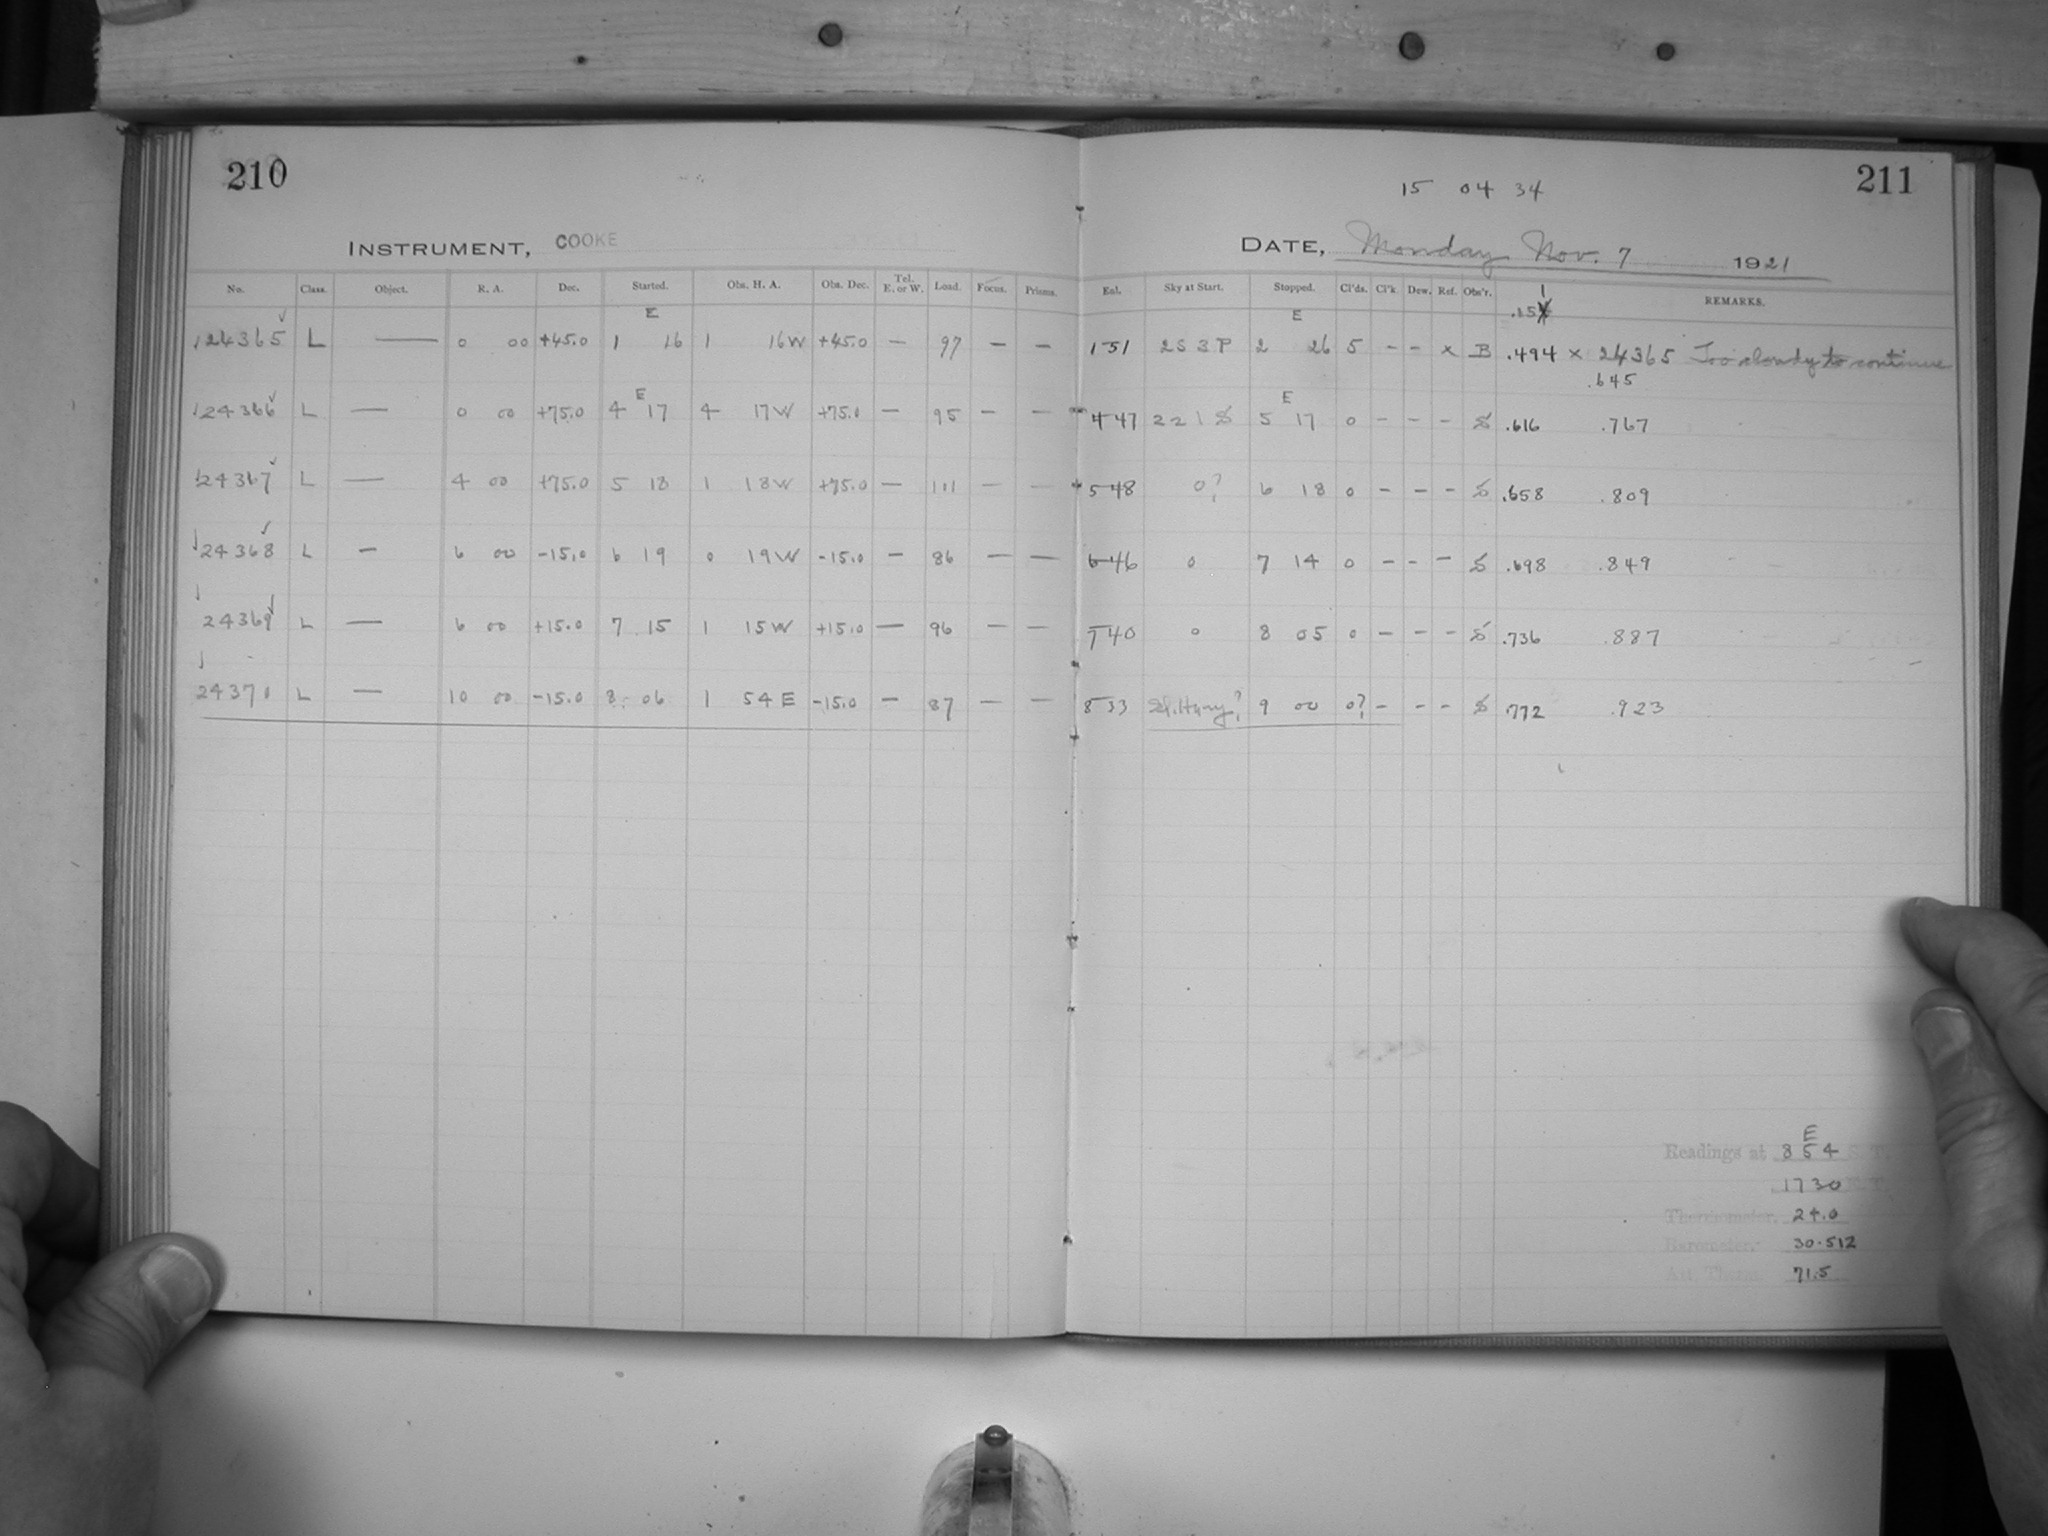 210
INSTRUMENT, COOKE
No. Class. Object. R. A. Dec. Started. Obs. H. A. Obs. Dec. Tel. E. or W. Load. Focus. Prisms.
E
24365 L — 0 00 +45.0 1 16 1 16W +45.0 — 97 — —
E
24366 L — 0 00 +75.0 4 17 4 17W +75.0 — 95 — —
24367 L — 4 00 +75.0 5 18 1 18W +75.0 — 111 — —
24368 L — 6 00 -15.0 6 19 0 19W -15.0 — 86 — —
24369 L — 6 00 +15.0 7 15 1 15W +15.0 — 96 — —
24370 L — 10 00 -15.0 8 06 1 54E -15.0 — 87 — —
211
15 04 34
DATE, Monday Nov. 7 1921
Eql. Sky at Start. Stopped. Cl'ds. Cl'k. Dew. Ref. Obs'r. REMARKS.
1
.15
E
1 51 2S 3P 2 26 5 - - x B .494 x 24365 Too cloudy to continue
.645
E
4 47 2 2 1 S 5 17 0 - - - S .616 .767
5 48 0? 6 18 0 - - - S .658 .809
6 46 0 7 14 0 - - - S .698 .849
7 40 0 8 05 0 - - - S .736 .887
8 33 Sl. Hazy? 9 00 0? - - - S .772 .923
E
Readings at 8 54 S. T.
17 30
Thermometer, 24.0
Barometer, 30.512
Att. Therm. 71.5